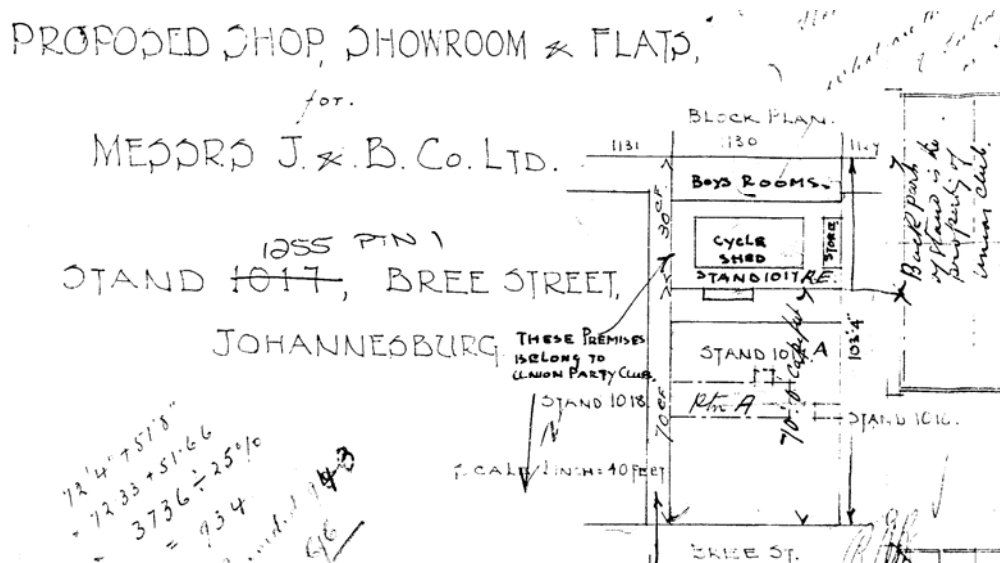 PROPOSED SHOP, SHOWROOM & FLATS,
for.
MESSRS J. & B. Co. LTD.
1255 PTN 1
STAND 1017, BREE STREET,
JOHANNESBURG
BLOCK PLAN.
1131 1130
BOYS ROOMS.
30 CF
CYCLE
SHED
STORE
STAND 1017 R.E.
THESE PREMISES
BELONG TO
UNION PARTY CLUB.
STAND 1018
N
SCALE 1 INCH = 40 FEET
STAND A
Ptn A
70 CF
70' of
103'4"
STAND 1016.
BREE ST.
Back part
of Stand is the
property of
union club.
72'4" + 51'8"
= 72.33 + 51.66
= 3736 ÷ 25%
= 934